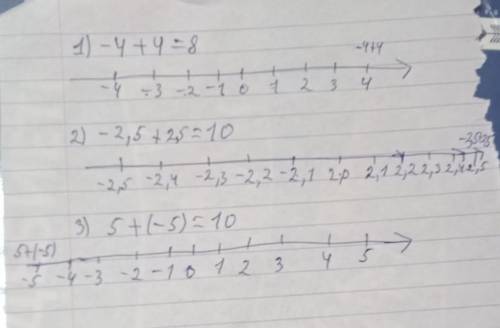 1) -4+4=8
-4+4
-4 -3 -2 -1 0 1 2 3 4
2) -2,5+2,5=10
-2,5+2,5
-2,5 -2,4 -2,3 -2,2 -2,1 2,0 2,1 2,2 2,3 2,4 2,5
3) 5+(-5)=10
5+(-5)
-5 -4 -3 -2 -1 0 1 2 3 4 5